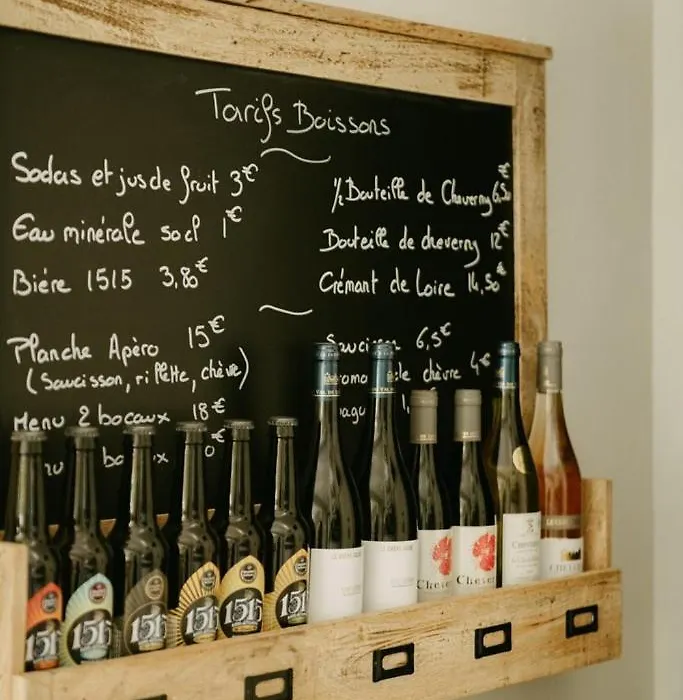 Tarifs Boissons
Sodas et jus de fruit 3€
Eau minérale 50cl 1€
Bière 1515 3,80€
Planche Apèro 15€
(Saucisson, rillette, chèvre)
Menu 2 bocaux 18€
½ Bouteille de Cheverny 6,50€
Bouteille de cheverny 12€
Crémant de Loire 14,50€
Saucisson 6,5€
de chèvre 4€
1515
1515
1515
1515
1515
1515